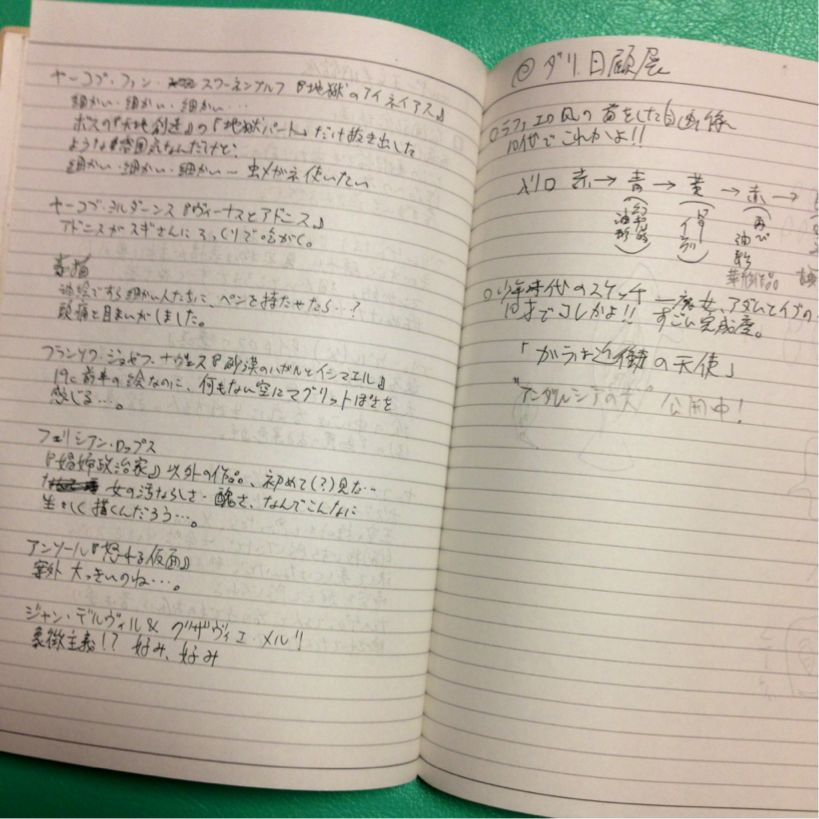 ヤーコプ・ファン・スワーネンブルフ『地獄のアイネイアス』
細かい・細かい・細かい…
ボスの『天地創造』の「地獄パート」だけ抜き出した
ような雰囲気なんだけど、
細かい・細かい・細かい… 虫メガネ使いたい
ヤーコブ・ヨルダーンス『ヴィーナスとアドニス』
アドニスがスギさんにそっくりで
素描
油絵ですら細かい人たちに、ペンを持たせたら…?
頭痛と目まいがしました。
フランソワ・ジョゼフ・ナヴェス『砂漠のハガルとイシマエル』
19c前半の絵なのに、何もない空にマグリットぽさを
感じる…。
フェリシアン・ロップス
『娼婦政治家』以外の作品、初めて(?)見た…
女の汚ならしさ・醜さ、なんでこんなに
生々しく描くんだろう…。
アンソール『怒れる仮面』
案外大っきいのね…。
ジャン・デルヴィル & グザヴィエ・メルリ
象徴主義!? 好み、好み
◎ ダリ回顧展
○ラファエロ風の首をした自画像
10代でこれかよ!!
メリロ 赤→青→黄→赤→
(幻想 油彩) 再び 油彩
○少年時代のスケッチ ー 魔女、アダムとイブの
10才でコレかよ!! すごい完成度。
「ガラは近衛の天使」
"アンダルシアの犬" 公開中!